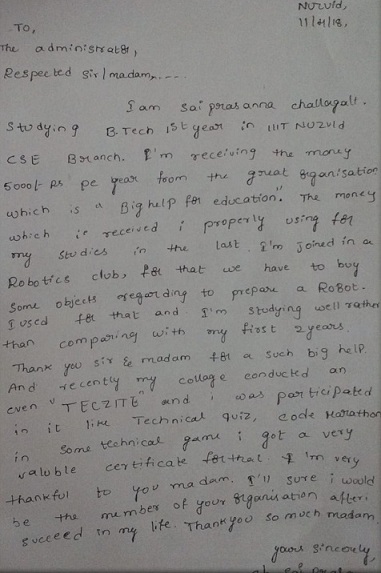 Nuzvid,
11/4/18,
To,
The administrator,
Respected sir/madam,....
I am sai prasanna challagali.
studying B.Tech 1st year in IIIT NUZVId
CSE Branch. I'm receiving the money
5000/- Rs pe year from the great organisation
which is a Big help for education". The money
which is received i properly using for
my studies in the last. I'm joined in a
Robotics club, for that we have to buy
some objects regarding to prepare a Robot.
I used for that and I'm studying well rather
than comparing with my first 2 years.
Thank you sir & madam for a such big help.
And recently my collage conducted an
even "TECZITE" and i was participated
in it like Technical quiz, code Marathon
in some technical game i got a very
valuble certificate for that. I'm very
thankful to you madam. I'll sure i would
be the member of your organisation after i
succeed in my life. Thank you so much madam
yours sincerely,